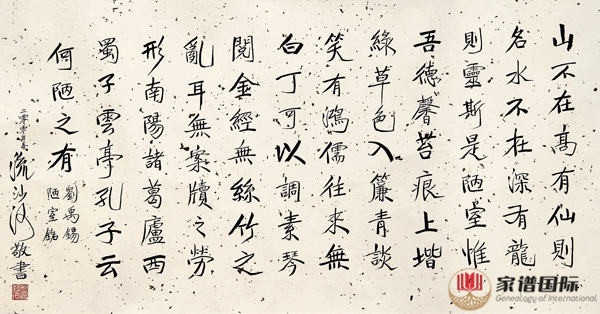 山不在高有仙則
名水不在深有龍
則靈斯是陋室惟
吾德馨苔痕上堦
綠草色入簾青談
笑有鴻儒往來無
白丁可以調素琴
閱金經無絲竹之
亂耳無案牘之勞
形南陽諸葛廬西
蜀子雲亭孔子云
何陋之有
劉禹錫
陋室銘
流沙河敬書
家谱国际
Genealogy of International